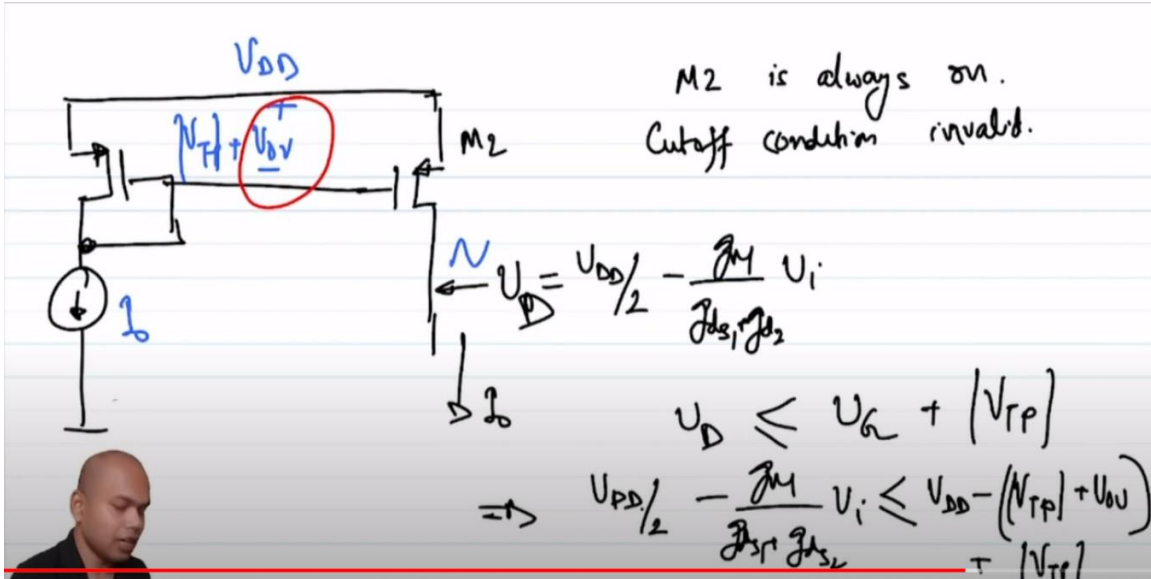 V_DD
|V_T|+ V_OV
M2
I_0
M2 is always on.
Cutoff condition invalid.
N V_D = V_DD/2 - g_M / (g_ds1 + g_d2) V_i
I_0
V_D ≤ V_G + |V_TP|
⇒ V_DD/2 - g_M / (g_ds1 + g_ds2) V_i ≤ V_DD - (|V_TP| + V_OV)
+ |V_TP|